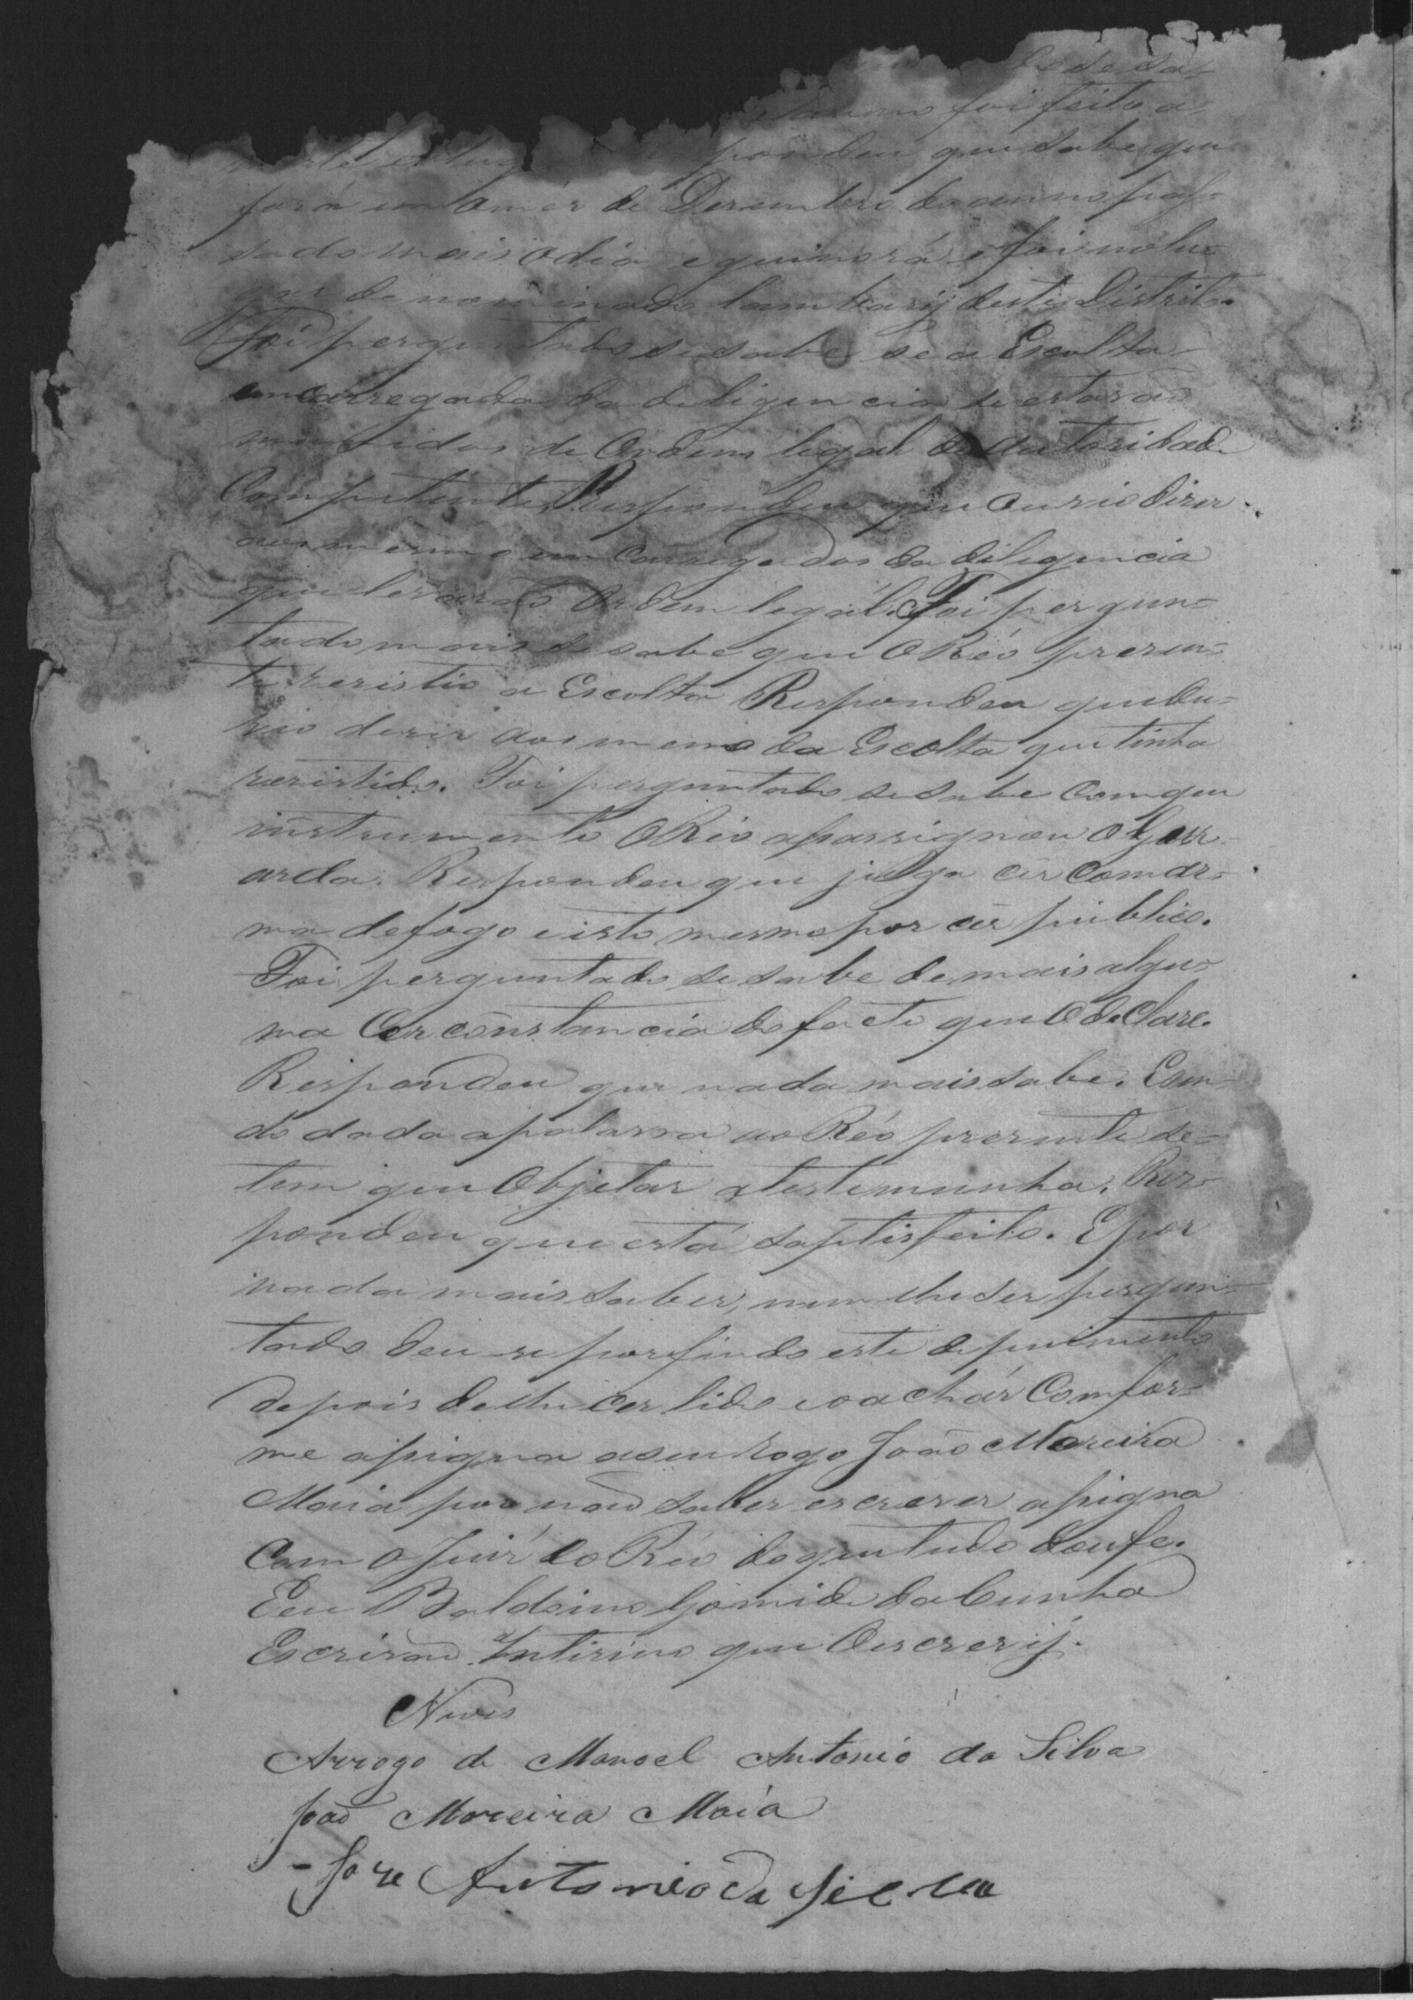 mo foi feita a
pondeu que sabe que
fora em o mez de Desembro do anno pas-
sado mais o dia e que ignora e foi no lu-
gar denominado Lambary deste Distrito.
Foi perguntado se sabe se a Escolta
emcarregada da deligencia se estavaõ
munidos de Ordem legal de Autoridade
Competente, Respondeu que ouvio dizer
aos mesmos emcarregados da diligencia
que levavaõ Ordem legál. Foi pergun=
tado mais se sabe que o Réo prezen=
te rezistio a Escolta Respondeu que ou=
vio dizir aos mesmos da Escolta que tinha
rezistido. Foi perguntado se sabe com que
instrumento o Réo assassignou o Gou-
arda. Respondeu que julga cer com ar=
ma de fogo e isto mesmo por cer publico.
Foi perguntado se sabe de mais algu=
ma Cerconstancia do facto que o declare.
Respondeu que nada mais sabe. Sem-
do dada a palavra ao Réo prezente se=
tem que Objetar a testemunha. Res=
pondeu que está saptisfeito. E por
nada mais saber, nem lhe ser pergun=
tado deu-se por findo este depuimento
depois de lhe cer lido e o achár Comfor=
me assigna a seu rogo João Moreira
Maia por naõ saber escrever assigna
Com o Juiz do Réo do que tudo dou fe.
Eeu Baldoino Gomide da Cunha
Escrivaõ Intirino que O escrevij.
Neves
Arrogo de Manoel Antonio da Silva
Joaõ Moreira Maia
Joze Antonio da Silva